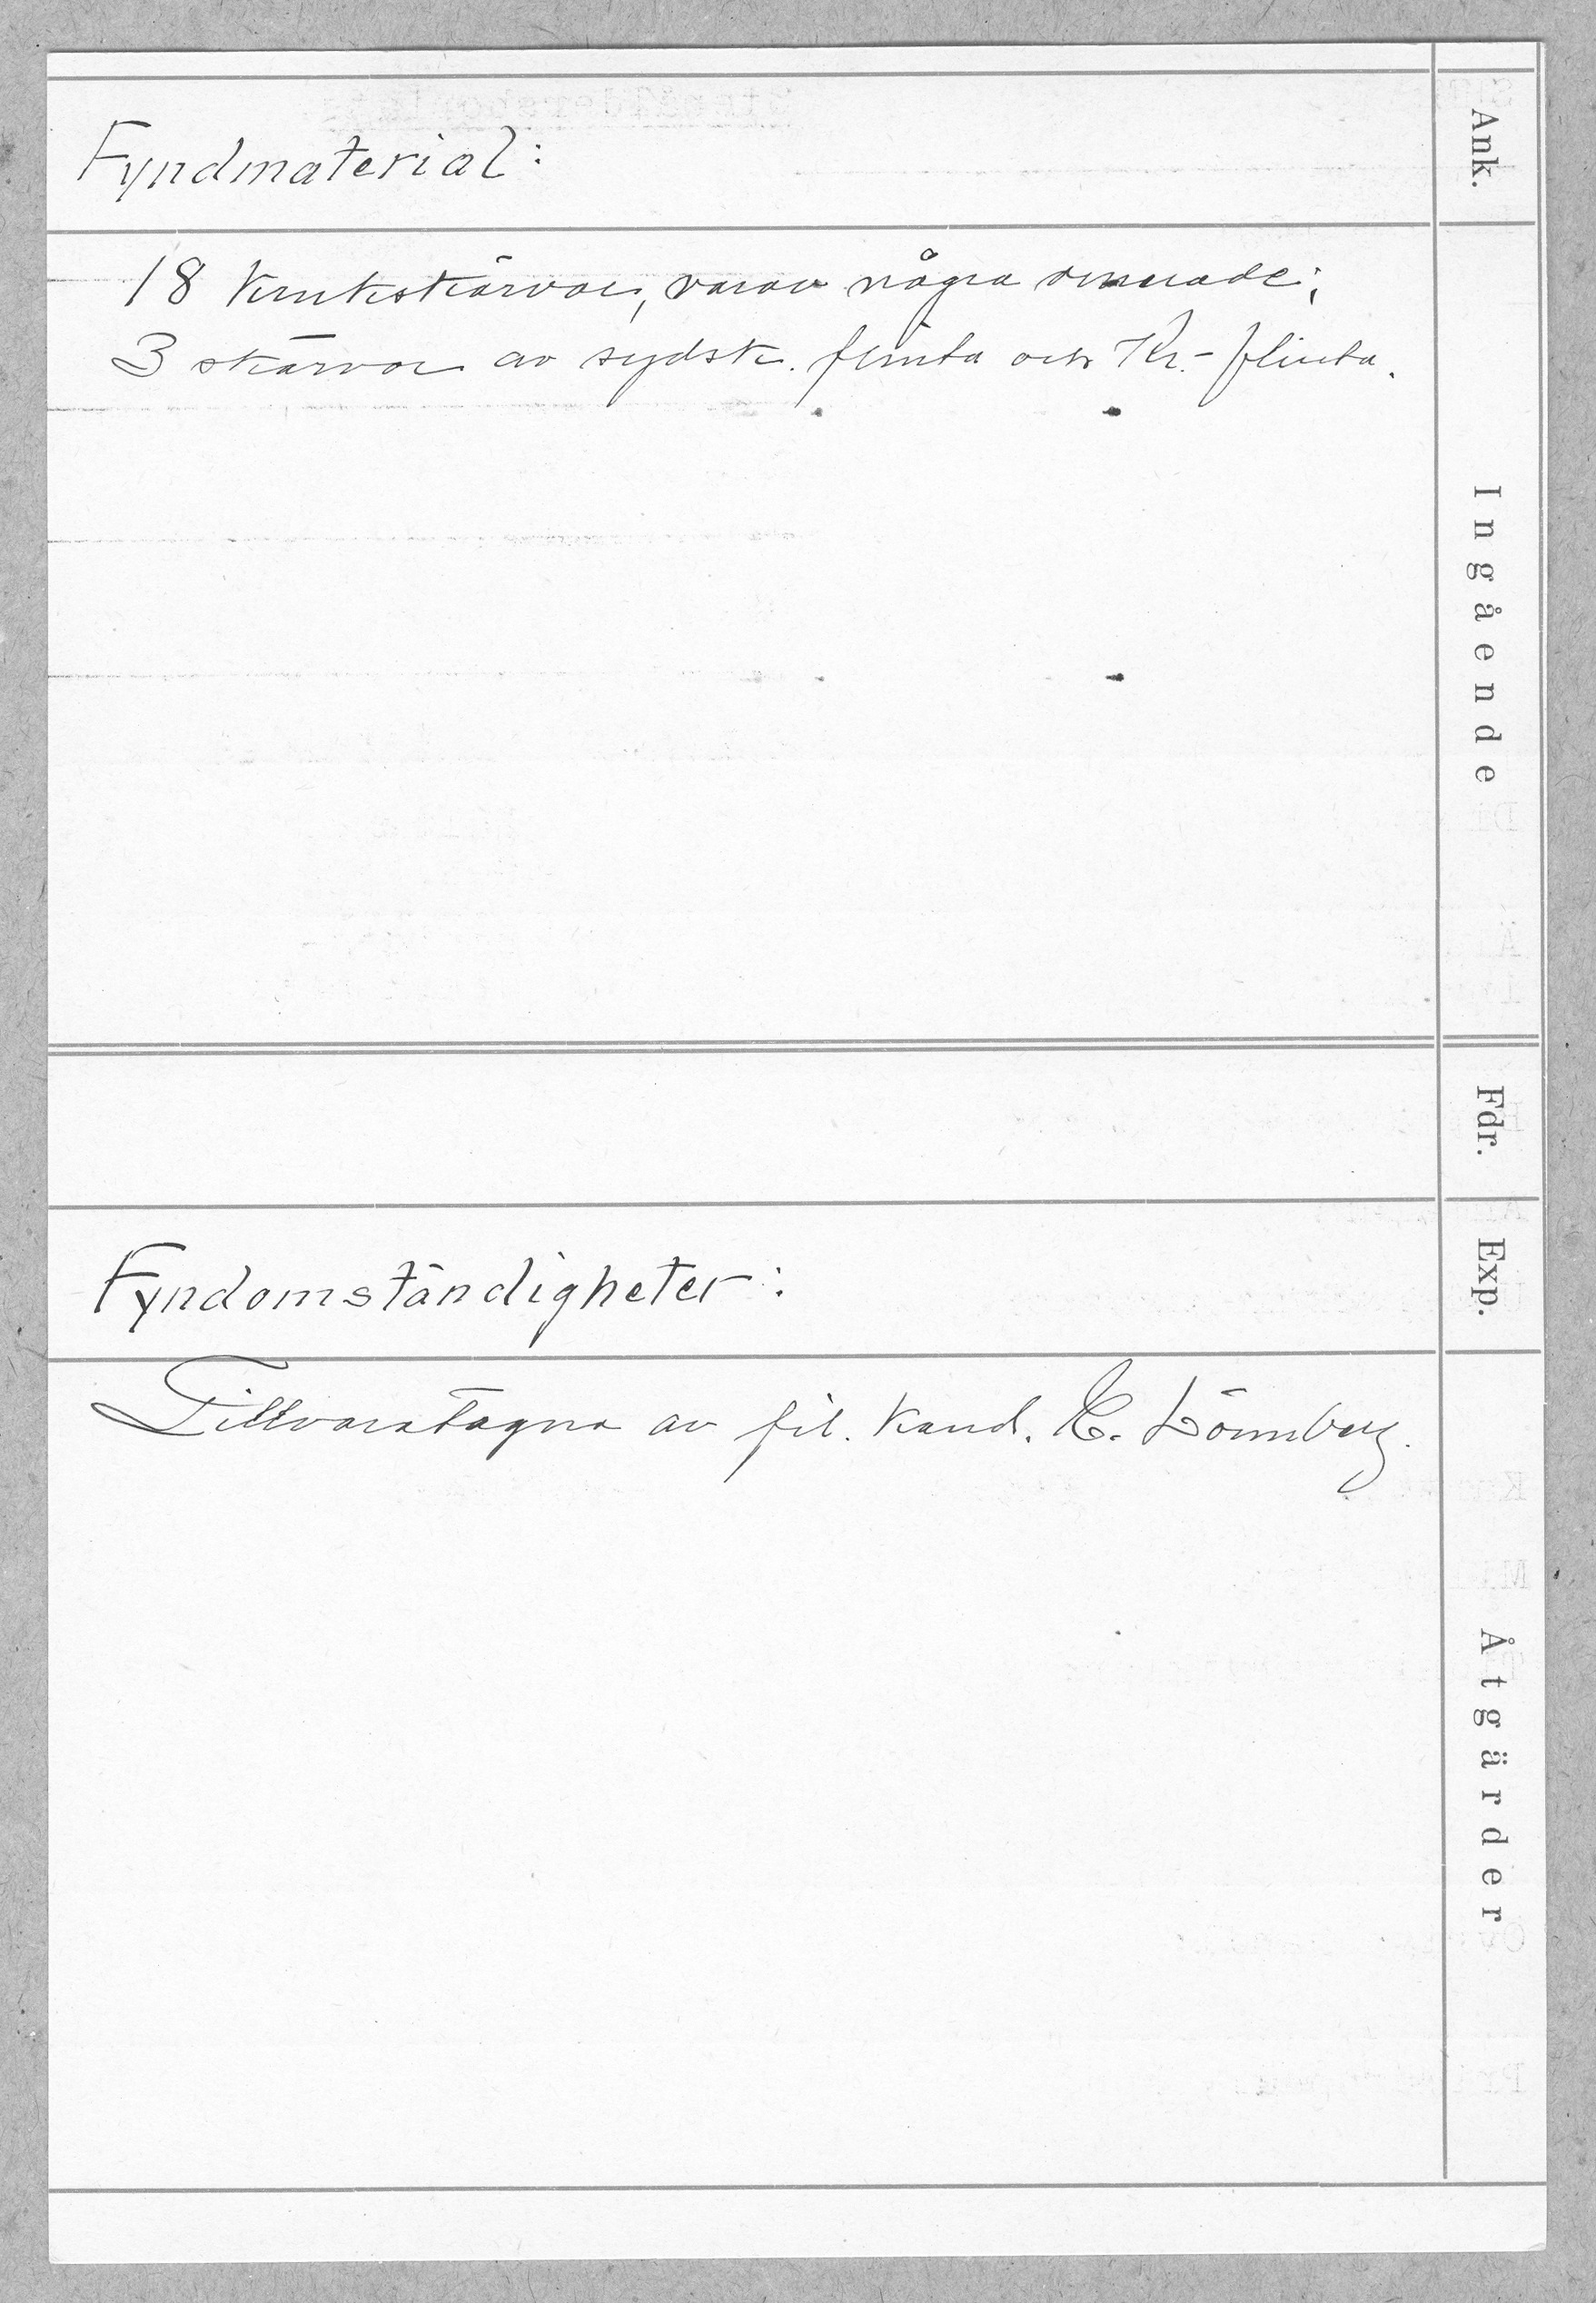 Fyndmaterial:
Ank.
18 krukskärvor, varav några ornerade;
3 skärvor av sydsk. flinta och Kr.-flinta.
Ingående
Fdr.
Fyndomständigheter:
Exp.
Tillvaratagna av fil. kand. E. Lönnberg.
Åtgärder